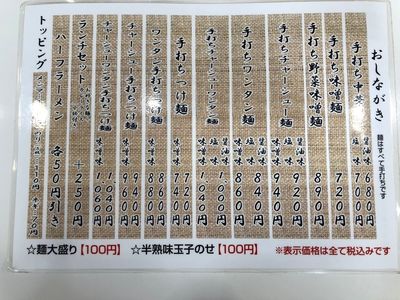 おしながき
麺はすべて手打ちです
手打ち中華
醤油味 680円
塩味 700円
手打ち味噌麺 720円
手打ち野菜味噌麺 890円
手打ちチャーシュー麺
醤油味
塩味
味噌味 920円
手打ちワンタン麺
醤油味 840円
塩味 860円
手打ちチャーシューワンタン麺
醤油味
塩味 1,040円
手打ちつけ麺
醤油味 720円
味噌味 740円
ワンタン手打ちつけ麺
醤油味 860円
味噌味
チャーシュー手打ちつけ麺
醤油味 940円
味噌味 960円
チャーシューワンタン手打ちつけ麺
醤油味 1,040円
味噌味 1,060円
ランチセット
+250円
ハーフラーメン 各50円引き
トッピング
☆麺大盛り【100円】
☆半熟味玉子のせ【100円】
※表示価格は全て税込みです